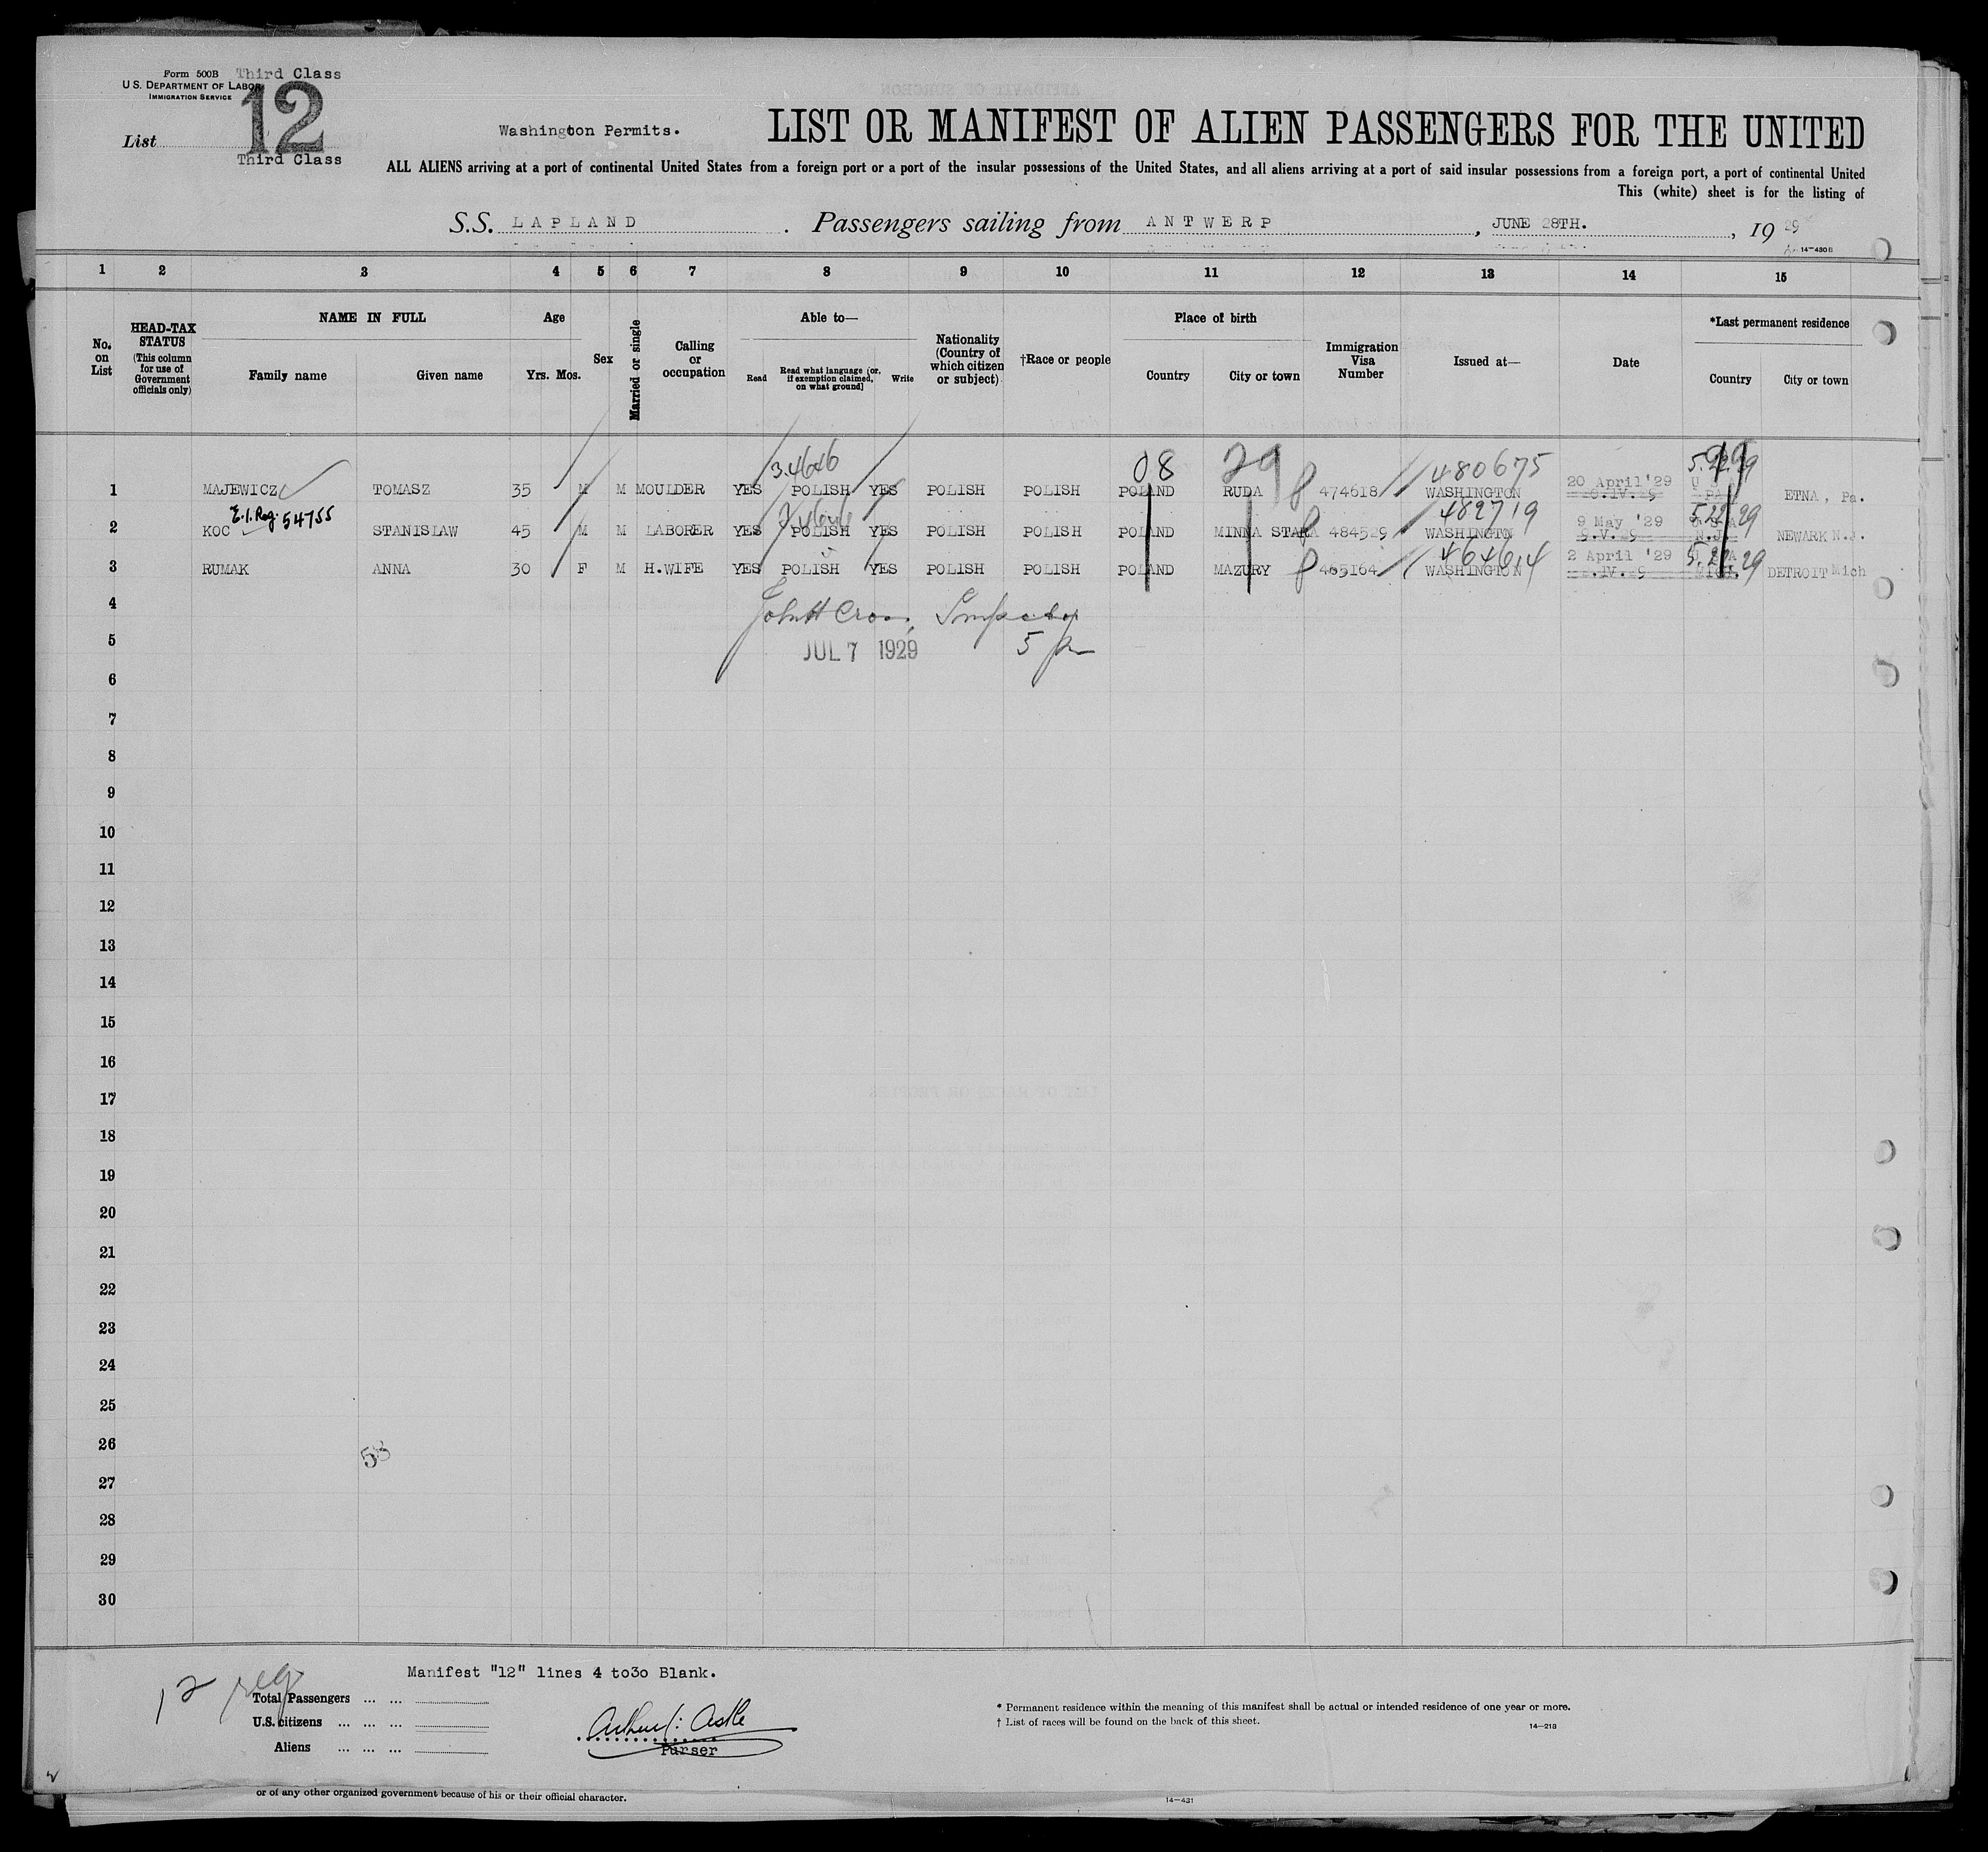 Form 500B Third Class
U. S. DEPARTMENT OF LABOR
IMMIGRATION SERVICE
List 12
Third Class
Washington Permits.
LIST OR MANIFEST OF ALIEN PASSENGERS FOR THE UNITED
ALL ALIENS arriving at a port of continental United States from a foreign port or a port of the insular possessions of the United States, and all aliens arriving at a port of said insular possessions from a foreign port, a port of continental United
This (white) sheet is for the listing of
S.S. LAPLAND . Passengers sailing from ANTWERP , JUNE 28TH. , 19 29
14—430B
1 2 3 4 5 6 7 8 9 10 11 12 13 14 15
No. on List
HEAD-TAX STATUS (This column for use of Government officials only)
NAME IN FULL
Family name Given name
Age
Yrs. Mos.
Sex
Married or single
Calling or occupation
Able to—
Read Read what language [or, if exemption claimed, on what ground] Write
Nationality (Country of which citizen or subject)
†Race or people
Place of birth
Country City or town
Immigration Visa Number
Issued at—
Date
*Last permanent residence
Country City or town
3.4646 08 29 480675
1 MAJEWICZ TOMASZ 35 M M MOULDER YES POLISH YES POLISH POLISH POLAND RUDA 474618 WASHINGTON 20 April '29 PA ETNA, Pa.
E.I. Reg. 54755 482719 5.22.29
2 KOC STANISLAW 45 M M LABORER YES POLISH YES POLISH POLISH POLAND MINNA STARA 484529 WASHINGTN 9 May '29 N.J. NEWARK N.J.
464614
3 RUMAK ANNA 30 F M H.WIFE YES POLISH YES POLISH POLISH POLAND MAZURY 465164 WASHINGTON 2 April '29 DETROIT Mich
4 John H Cross, Inspector
5 JUL 7 1929 5 pm
6
7
8
9
10
11
12
13
14
15
16
17
18
19
20
21
22
23
24
25
26 58
27
28
29
30
12 reg
Manifest "12" lines 4 to30 Blank.
Total Passengers ... ...
U.S. citizens ... ... ...
Aliens ... ... ...
Purser
* Permanent residence within the meaning of this manifest shall be actual or intended residence of one year or more.
† List of races will be found on the back of this sheet.
14—213
or of any other organized government because of his or their official character.
14—431